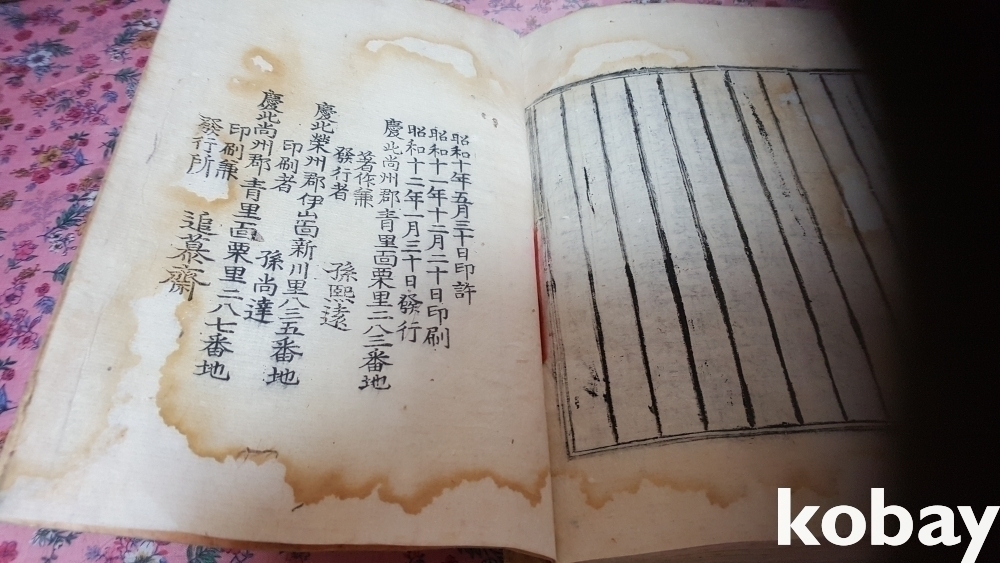 昭和十年五月三十日印許
昭和十一年十二月二十日印刷
昭和十二年一月三十日發行
慶北尚州郡青里面栗里二八三番地
著作兼
發行者 孫熙遠
慶北榮州郡伊山面新川里八三五番地
印刷者 孫尚達
慶北尚州郡青里面栗里二八七番地
印刷兼
發行所 追慕齋
kobay